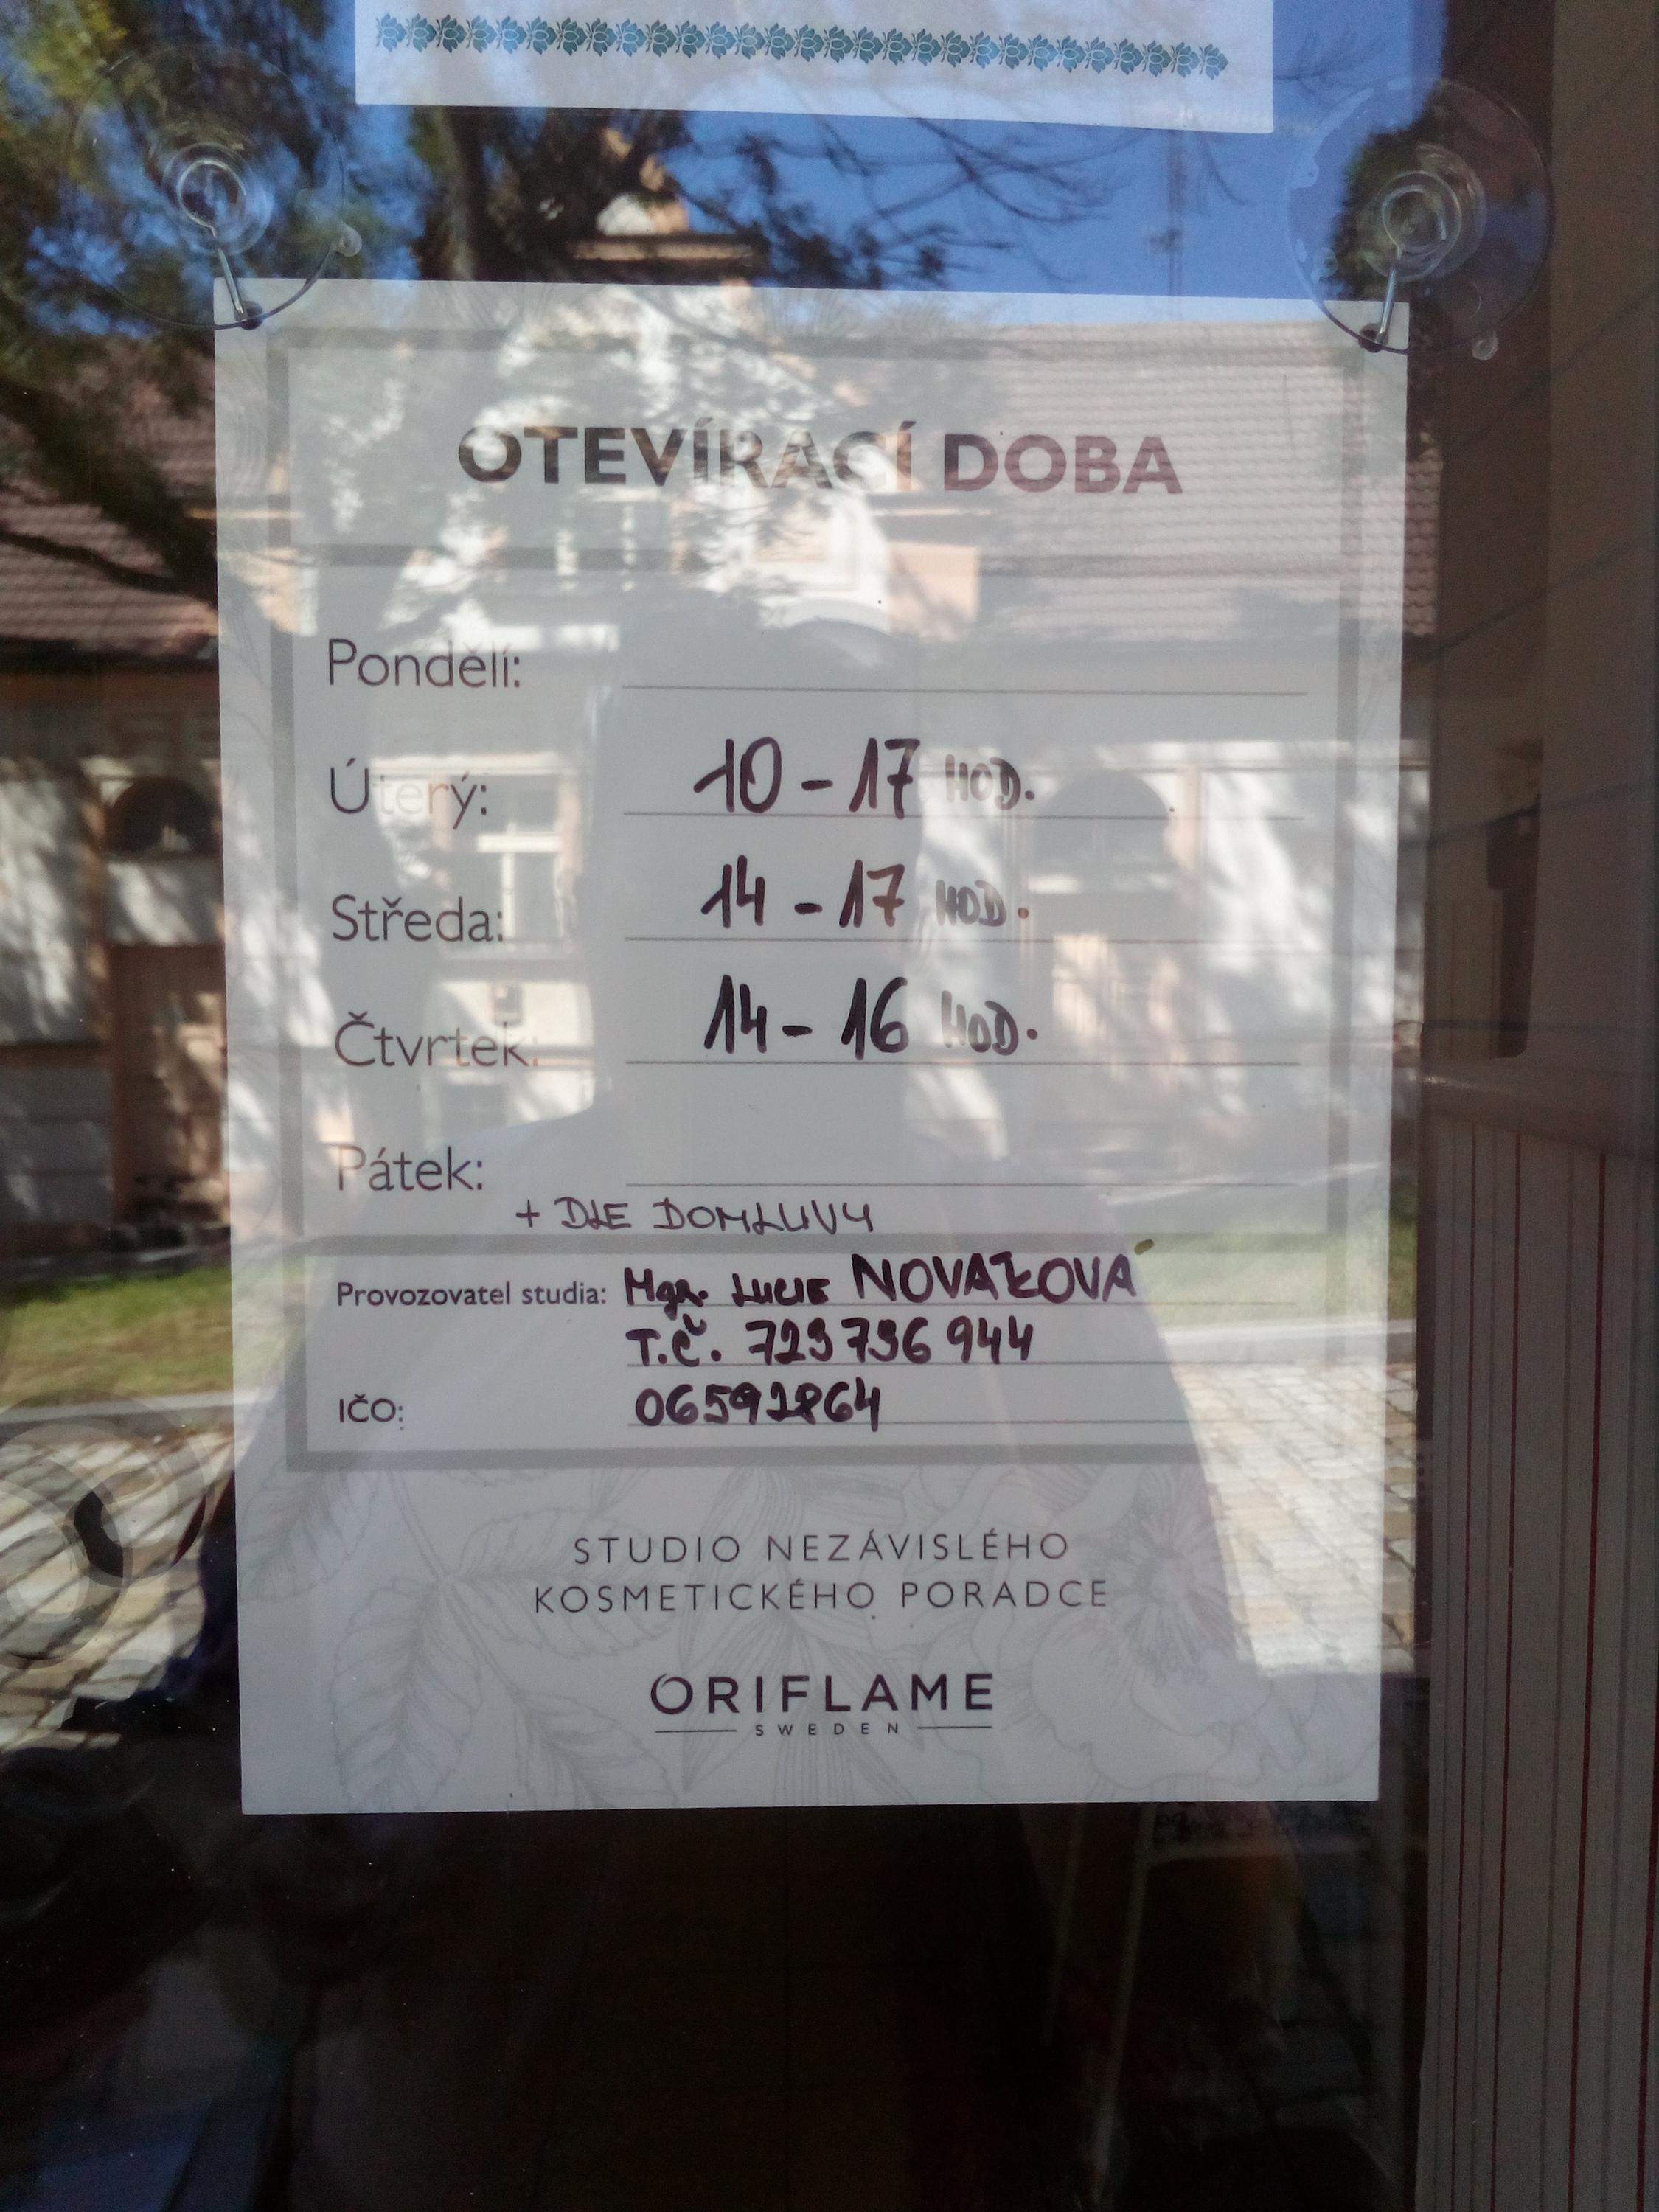 OTEVÍRACÍ DOBA
Pondělí:
Úterý: 10 - 17 HOD.
Středa: 14 - 17 HOD.
Čtvrtek: 14 - 16 HOD.
Pátek:
+ DLE DOMLUVY
Provozovatel studia: Mgr. LUCIE NOVÁKOVÁ
T.Č. 723 736 944
IČO: 06592864
STUDIO NEZÁVISLÉHO
KOSMETICKÉHO PORADCE
ORIFLAME
SWEDEN